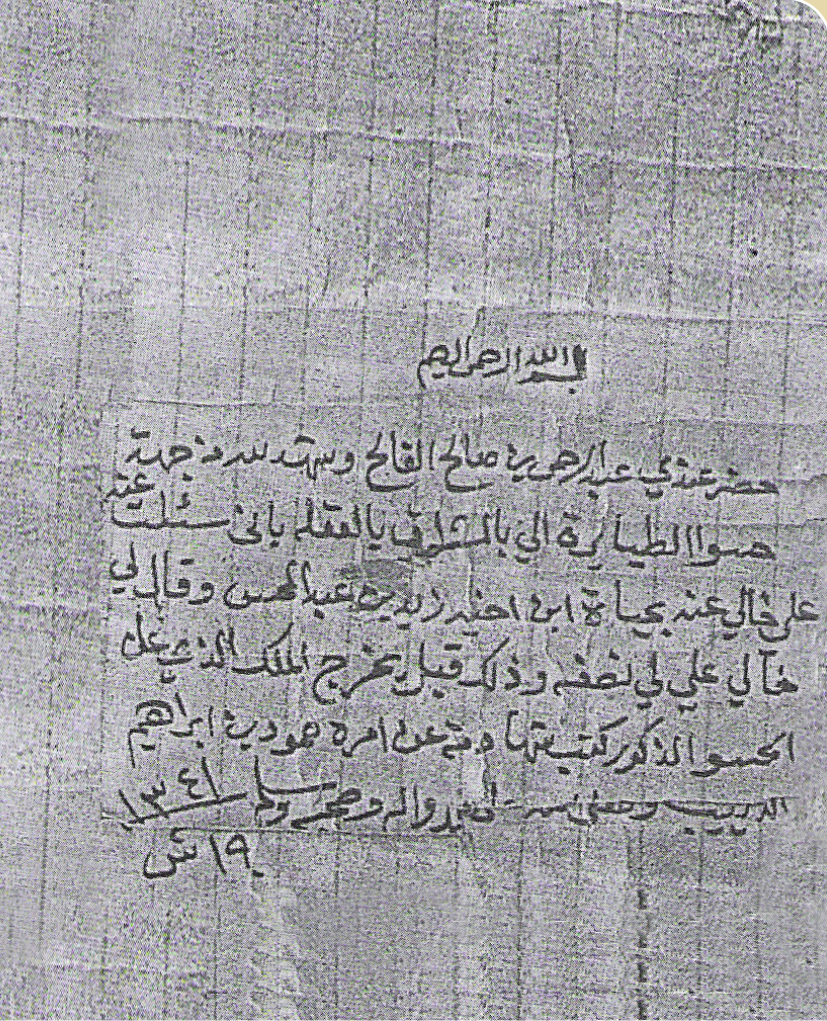 بسم الله الرحمن الرحيم
حضر عندي عبد الرحمن بن صالح الفالح وشهد لله من جهة
حسوا الطيايرة الي بالمشراف بالعقله باني سئلت عنه
علي خالي عنه بحياة ابن اخيه زيد بن عبد المحسن وقال لي
خالي علي لي نصفه وذلك قبل يخرج الملك الذي على
الحسو المذكور كتب شهادته عن امره حمود بن ابراهيم
الذييب وصلى الله على محمد واله وصحبه وسلم ١٣٤١
١٩ ش